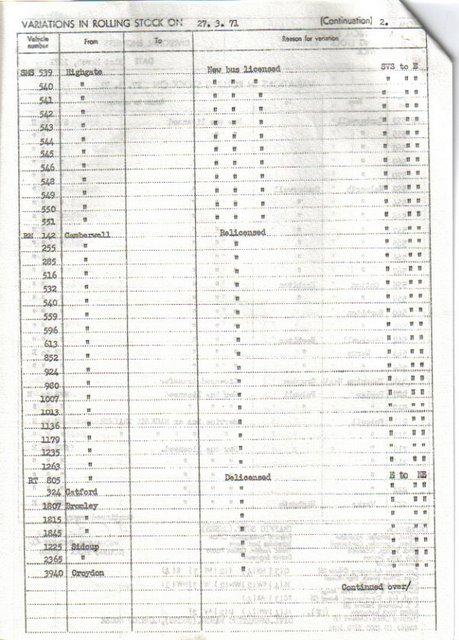 VARIATIONS IN ROLLING STOCK ON 27. 3. 71 (Continuation) 2.
Vehicle number From To Reason for variation
SMS 539 Highgate New bus licensed SVS to E
540 " " " " " " "
541 " " " " " " "
542 " " " " " " "
543 " " " " " " "
544 " " " " " " "
545 " " " " " " "
546 " " " " " " "
548 " " " " " " "
549 " " " " " " "
550 " " " " " " "
551 " " " " " " "
RM 142 Camberwell Relicensed " " "
255 " " " " "
285 " " " " "
516 " " " " "
532 " " " " "
540 " " " " "
559 " " " " "
596 " " " " "
613 " " " " "
852 " " " " "
924 " " " " "
980 " " " " "
1007 " " " " "
1013 " " " " "
1136 " " " " "
1179 " " " " "
1235 " " " " "
1263 " " " " "
RT 805 " Delicensed E to EE
324 Catford " " " "
1807 Bromley " " " "
1815 " " " " "
1845 " " " " "
1225 Sidcup " " " "
2365 " " " " "
3940 Croydon " " " "
Continued over/